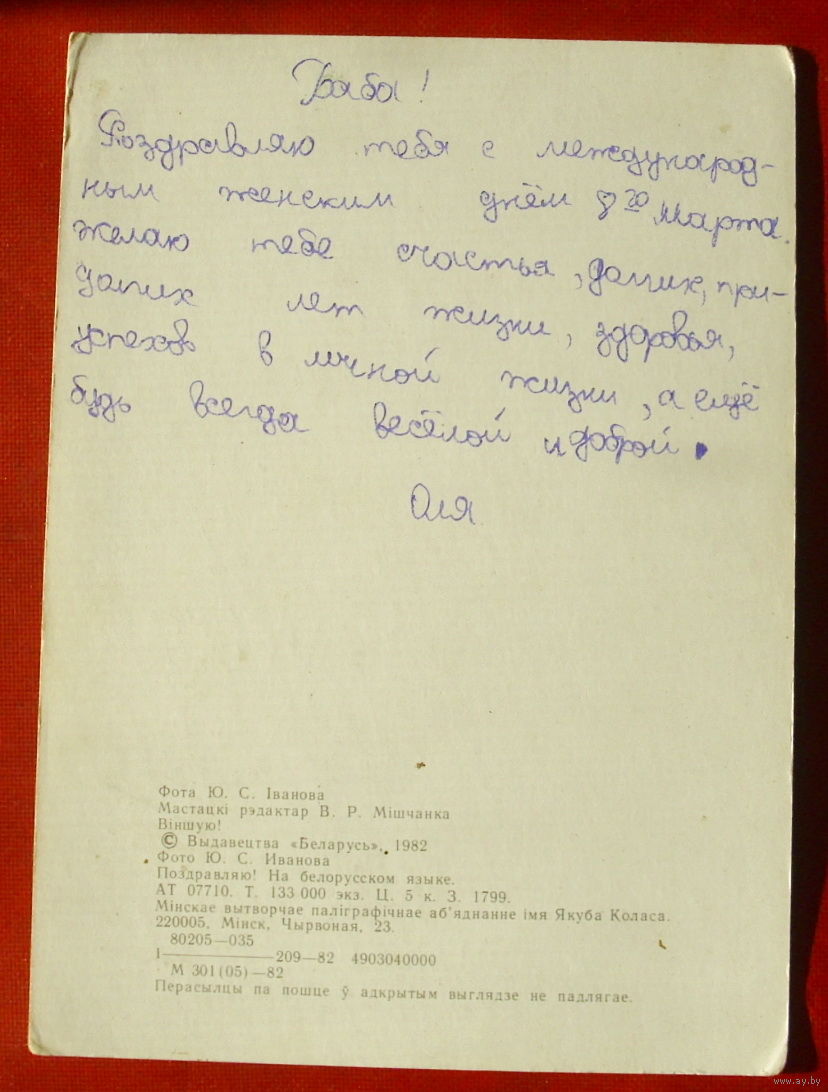 Баба!
Поздравляю тебя с международ-
ным женским днём 8 го Марта.
желаю тебе счастья,
лет жизни, здоровья,
успехов в личной жизни, а ещё
будь всегда весёлой и доброй.
Оля
Фота Ю. С. Іванова
Мастацкі рэдактар В. Р. Мішчанка
Віншую!
© Выдавецтва «Беларусь», 1982
Фото Ю. С. Иванова
Поздравляю! На белорусском языке.
АТ 07710. Т. 133 000 экз. Ц. 5 к. З. 1799.
Мінскае вытворчае паліграфічнае аб'яднанне імя Якуба Коласа.
220005, Мінск, Чырвоная, 23.
80205—035
1————209—82 4903040000
М 301(05)—82
Перасылцы па пошце ў адкрытым выглядзе не падлягае.
www.ay.by